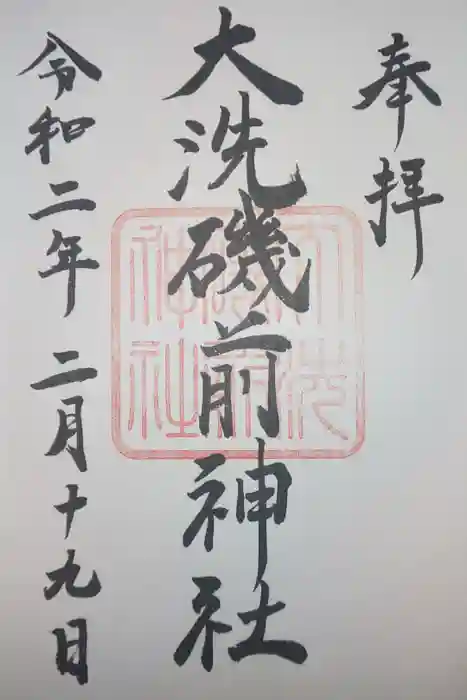 奉拝
大洗磯前神社
令和二年二月十九日
大洗
磯前
神社